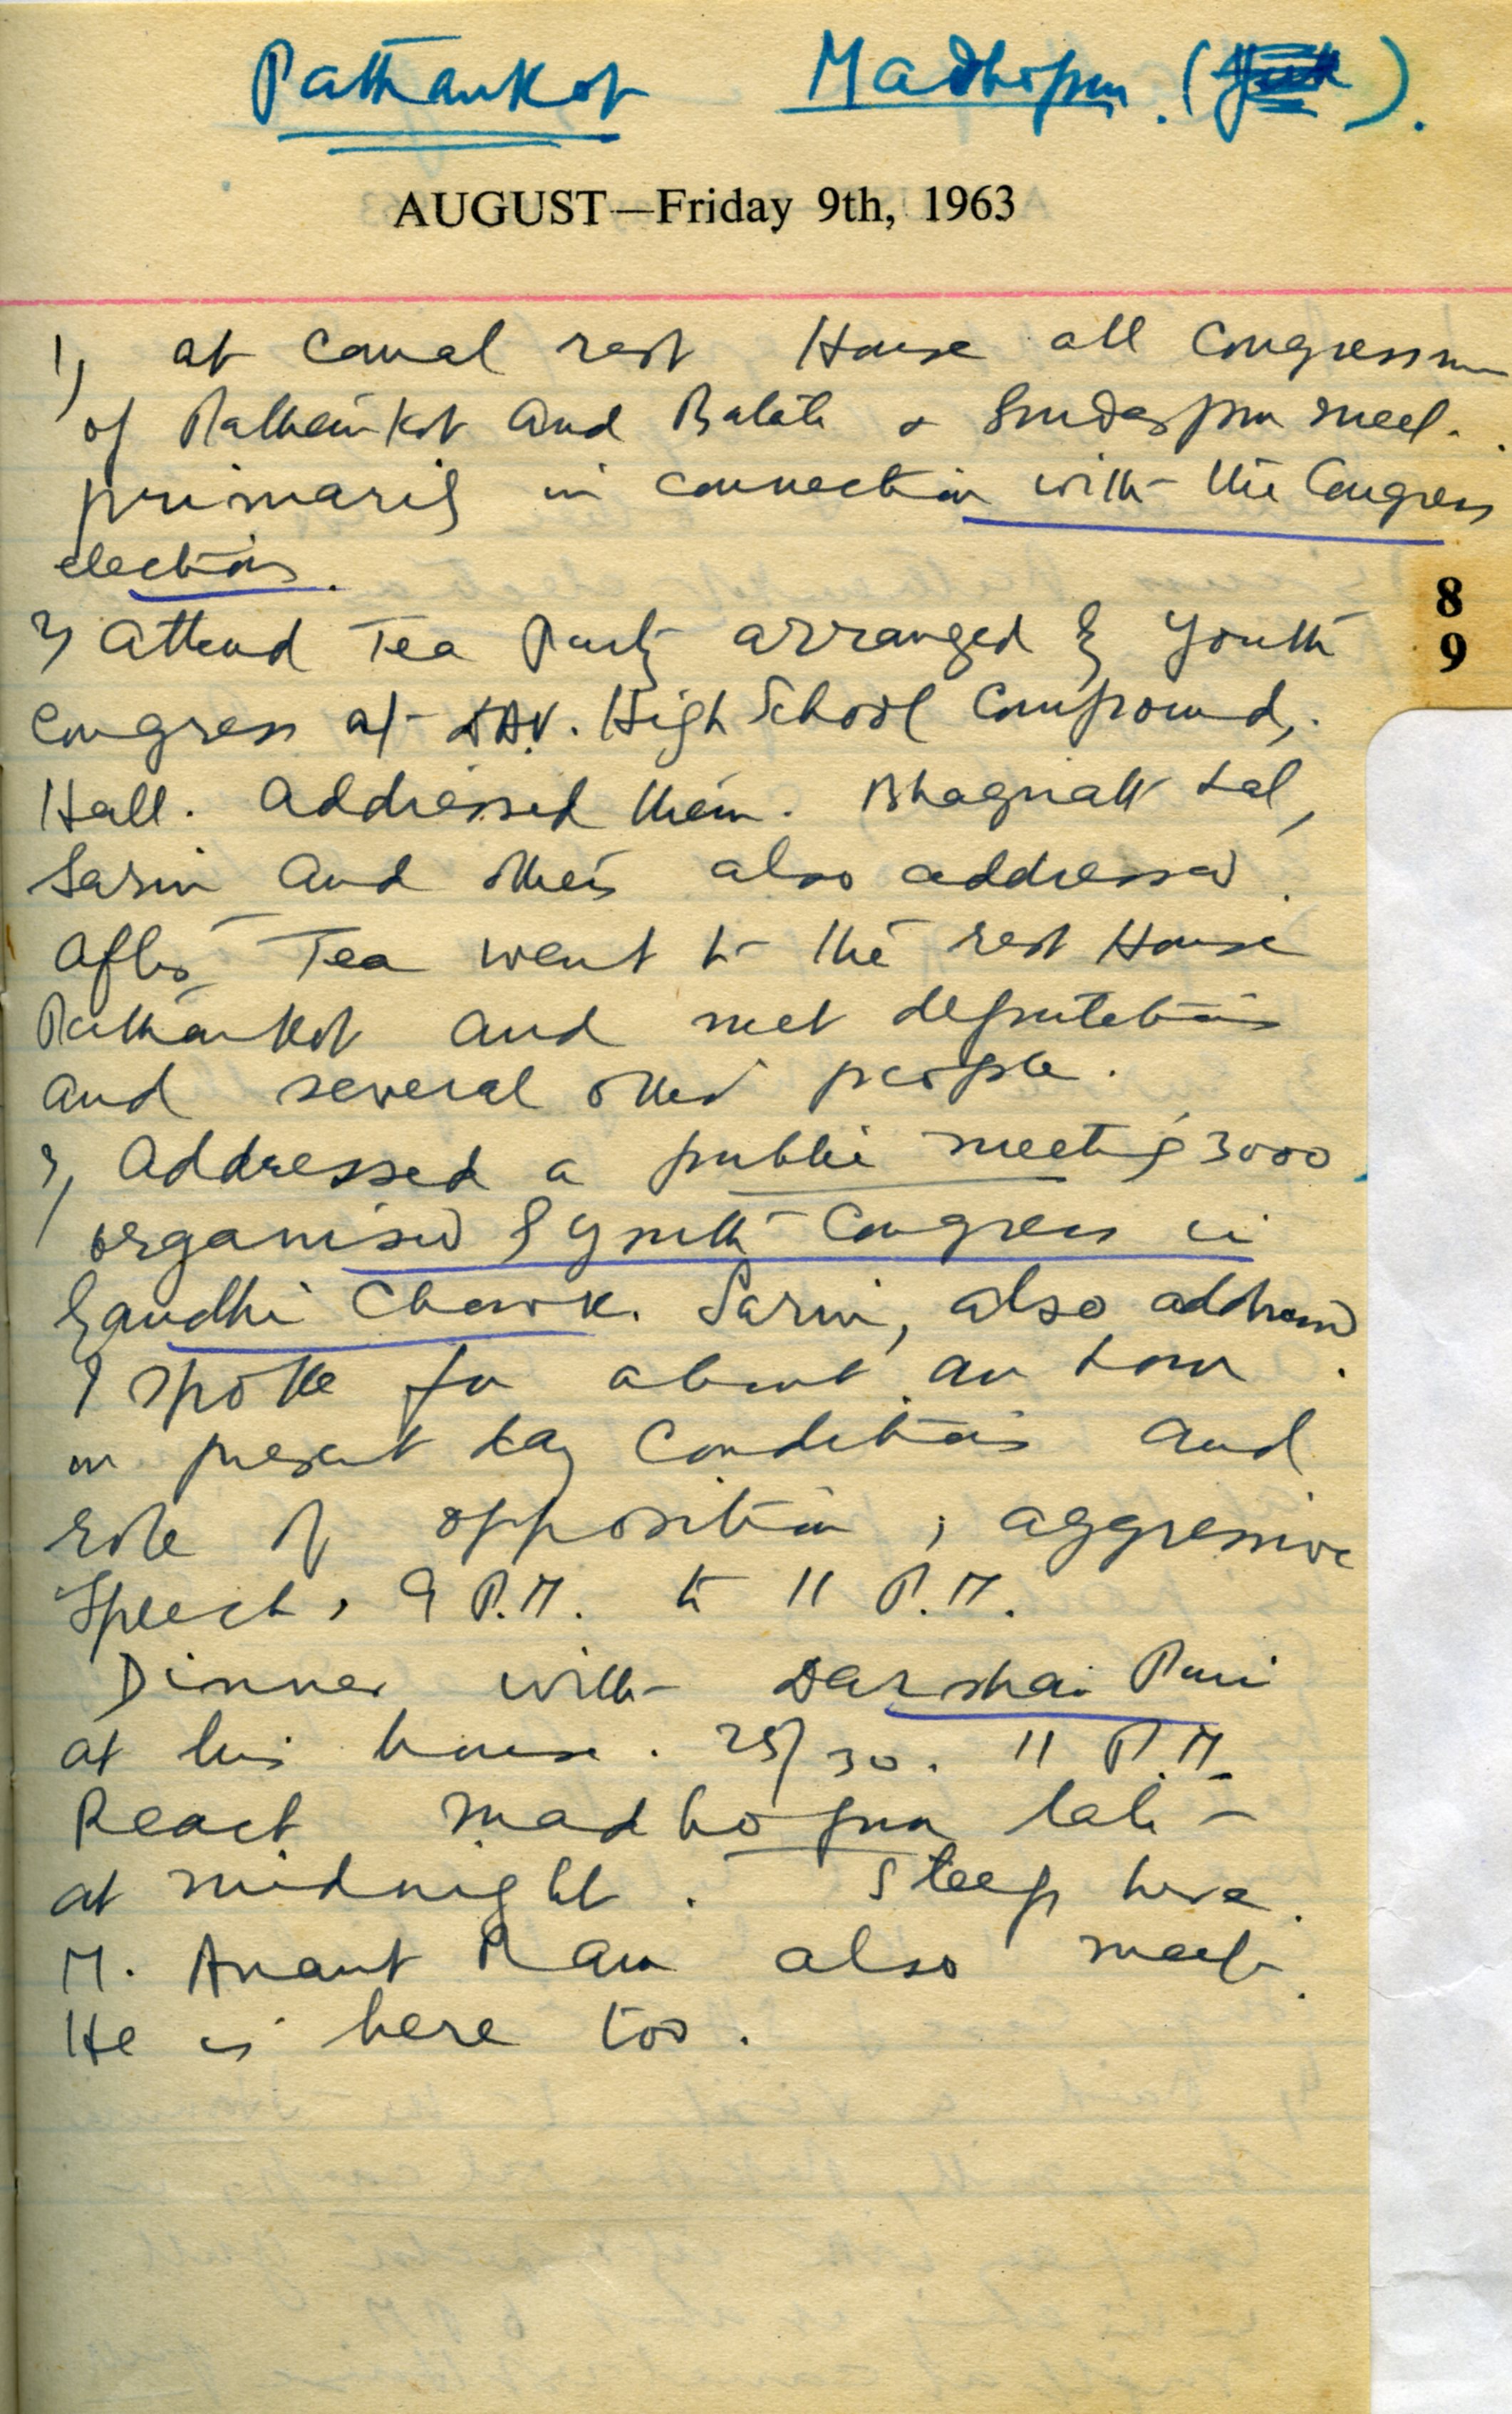 Pathankot Madhopur. ( ).
AUGUST—Friday 9th, 1963
1) at Canal rest House all Congressmen
of Pathankot and Batala & meet.
primarily in connection with the Congress
elections.
8
9
2) attend Tea Party arranged by Youth
Congress at DAV. High School Compound,
Hall. Addressed them. Lal,
Sarin and others also addressed.
After Tea went to the rest House
Pathankot and met deputations
and several other people.
3) Addressed a public meeting 3000
organised by Youth Congress in
Gandhi Chowk. Sarin, also addressed
I spoke for about an hour.
on present day Conditions and
role of opposition, aggressive
Speech, 9 P.M. to 11 P.M.
Dinner with Darshan Puri
at his house. 25/30. 11 P.M.
Reach Madhopur late
at midnight. Sleep here.
M. Anant Ram also meet.
He is here too.